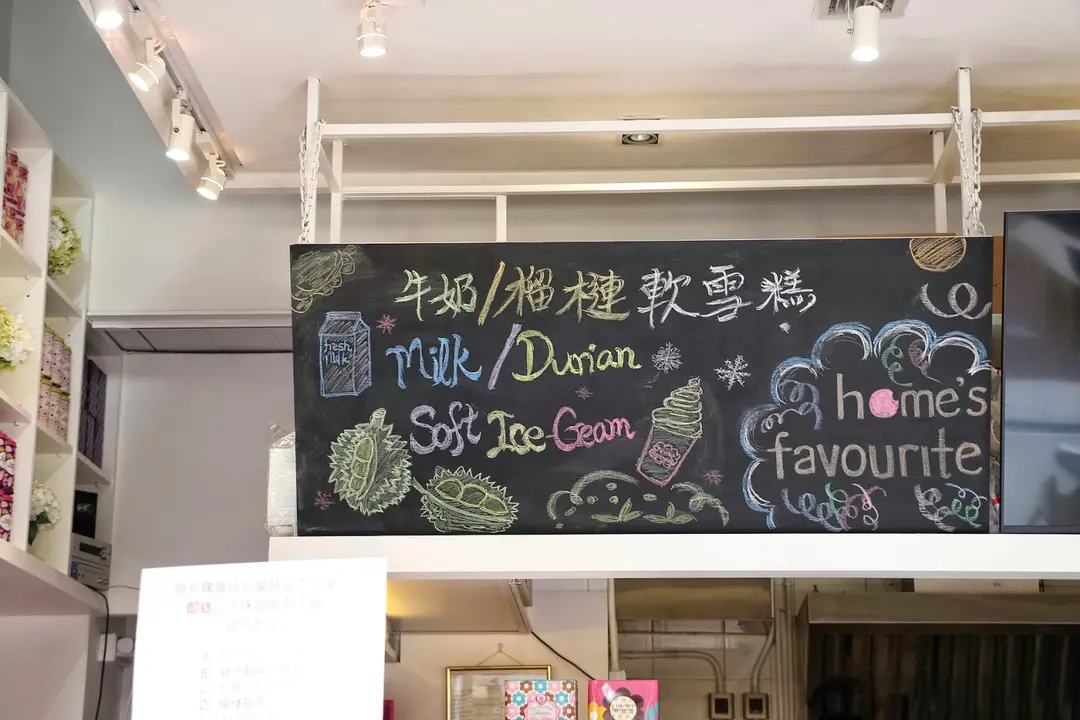 牛奶/榴槤軟雪糕
fresh milk
Milk / Durian
Soft Ice-Cream
home's
favourite
即送